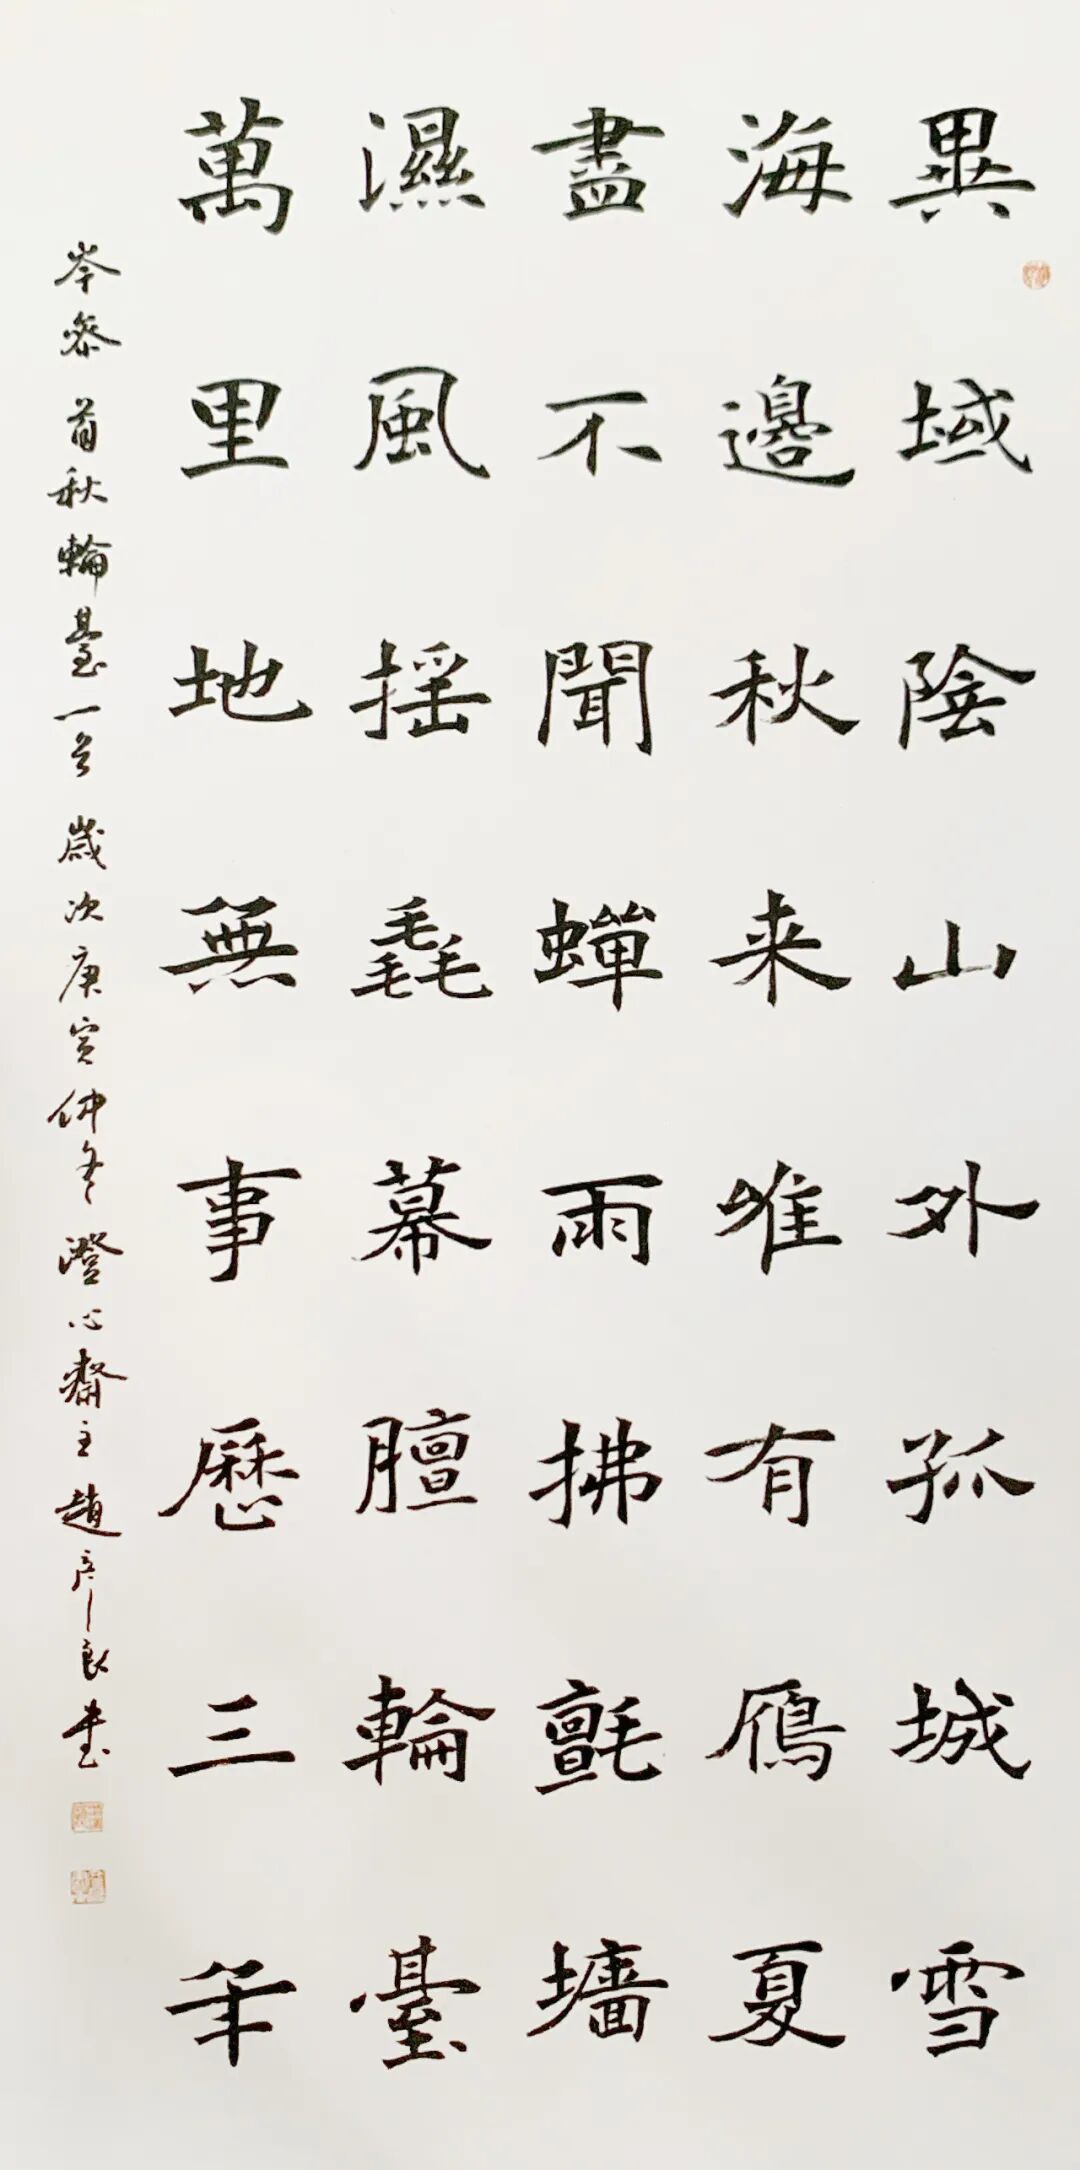 異域陰山外孤城雪
海邊秋来唯有鴈夏
盡不聞蟬雨拂氈墻
濕風摇毳幕膻輪臺
萬里地無事歷三年
岑參首秋輪臺一首 歲次庚寅仲冬 澄心齋主趙彥良書